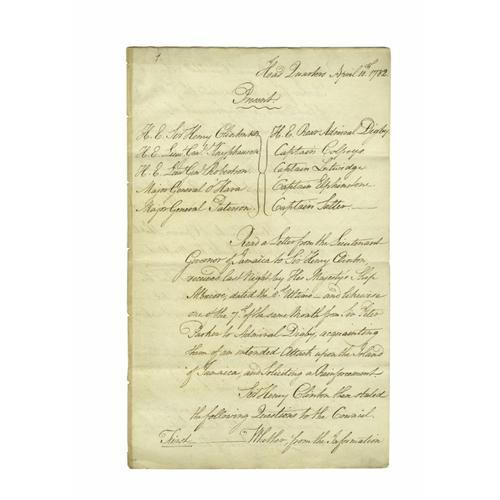 1
Head Quarters April 11th 1782
Present
H. E. Sir Henry Clinton KB
H. E. Lieut Genl Knyphausen
H. E. Lieut Genl Robertson
Major General O'Hara
Major General Paterson
H. E. Rear Admiral Digby
Captain
Captain Lutwidge
Captain Elphinstone
Captain Salter
Read a Letter from the Lieutenant
Governor of Jamaica to Sir Henry Clinton,
received last Night by His Majesty's Ship
dated the Ultimo and likewise
one of the 7th of the same Month from Sir Peter
Parker to Admiral Digby, acquainting
them of an intended Attack upon the Island
of Jamaica, and soliciting a Reinforcement.
Sir Henry Clinton then stated
the following Questions to the Council.
First Whether from the Information